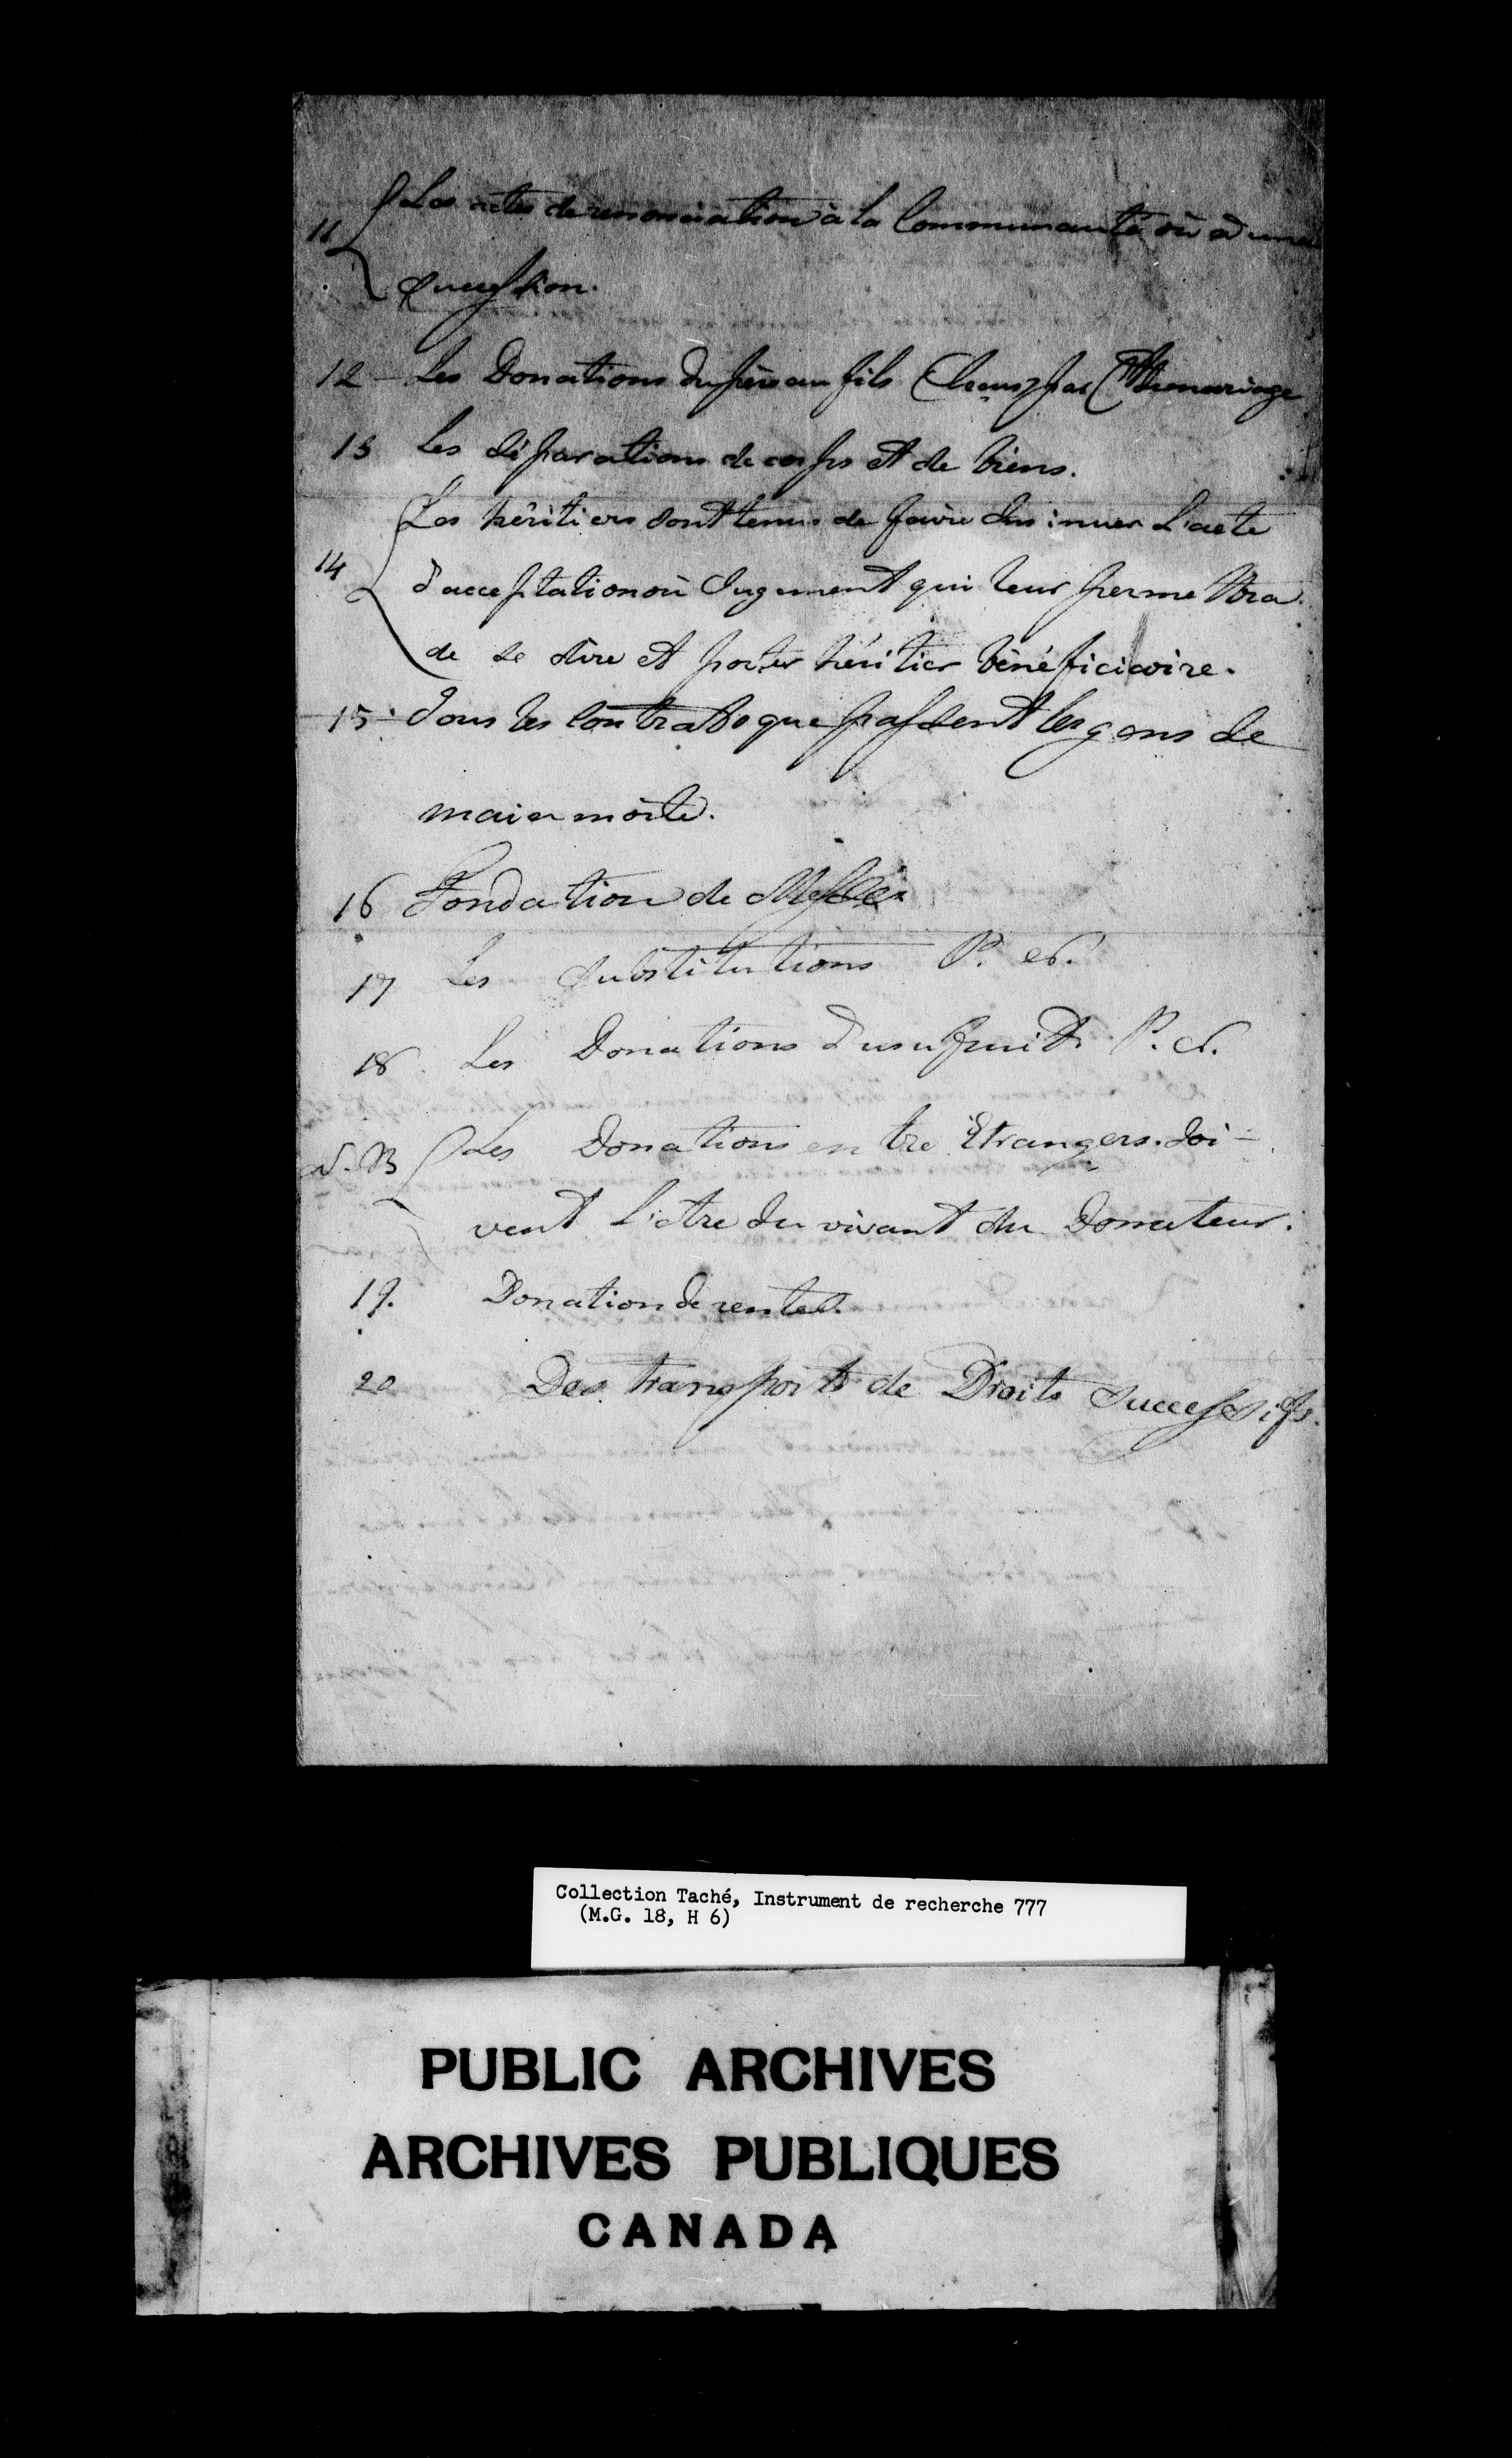 11 Les actes de renonciation à la Communauté où à une
Succession.
12 - Les Donations du père au fils par Ct de mariage
13 Les séparations de corps et de biens.
Les héritiers sont tenus de faire insinuer L'acte
14 d'acceptation où Jugement qui leur permettra
de se dire et porter héritier bénéficiaire.
15 - Tous les Contrats que passent les gens de
main morte.
16 Fondation de Messes
17 Les Substitutions P. et.
18 Les Donations d'usufruit P. et.
N.B Les Donations entre Etrangers doi-
vent l'être du vivant du Donateur.
19. Donation de rentes.
20 Des transports de Droits Successifs.
Collection Taché, Instrument de recherche 777
(M.G. 18, H 6)
PUBLIC ARCHIVES
ARCHIVES PUBLIQUES
CANADA